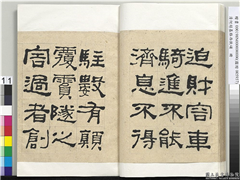 迫財容車
騎進不能
濟息不得
駐數有顛
覆霣隧之
害過者創
11